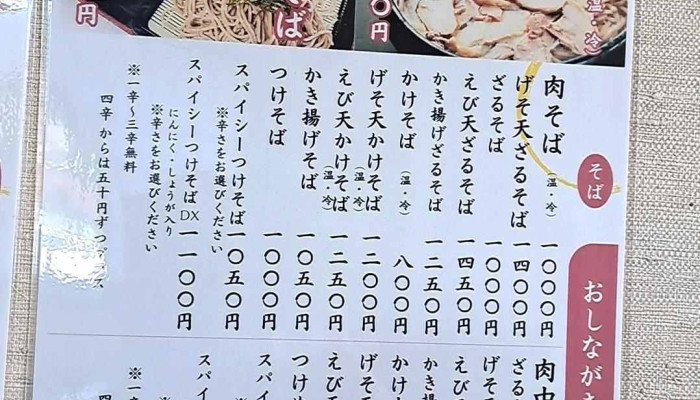 温・冷)
〇円
そば
円
そば
おしながき
肉そば (温・冷) 一〇〇〇円
げそ天ざるそば 一四〇〇円
ざるそば 一〇〇〇円
えび天ざるそば 一四五〇円
かき揚げざるそば 一二五〇円
かけそば (温・冷) 八〇〇円
げそ天かけそば (温・冷) 一二〇〇円
えび天かけそば (温・冷) 一二五〇円
かき揚げそば 一〇五〇円
つけそば 一〇〇〇円
スパイシーつけそば 一〇五〇円
※辛さをお選びください
スパイシーつけそばDX 一一〇〇円
にんにく・しょうが入り
※辛さをお選びください
※一辛〜三辛無料
四辛からは五十円ずつ
肉中
ざる
げそ
えび
かき揚
かけ
げそ天
えび天
かき揚
つけ
スパイ
※
スパイ
※
※一
四